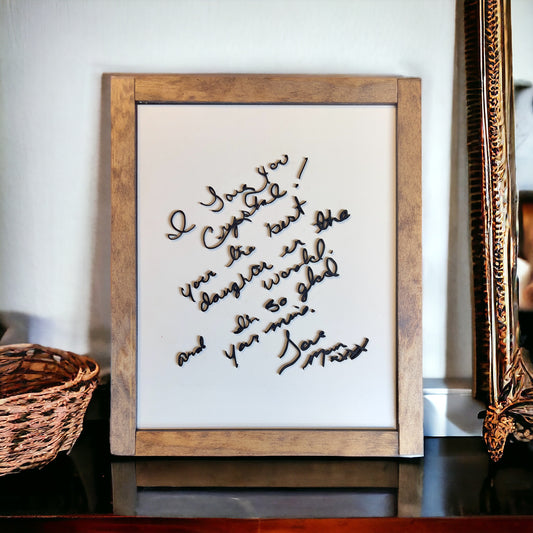 I Love You
Crystal!
your the best
daughter in the
world.
and I'm so glad
your mine.
Love
Mom